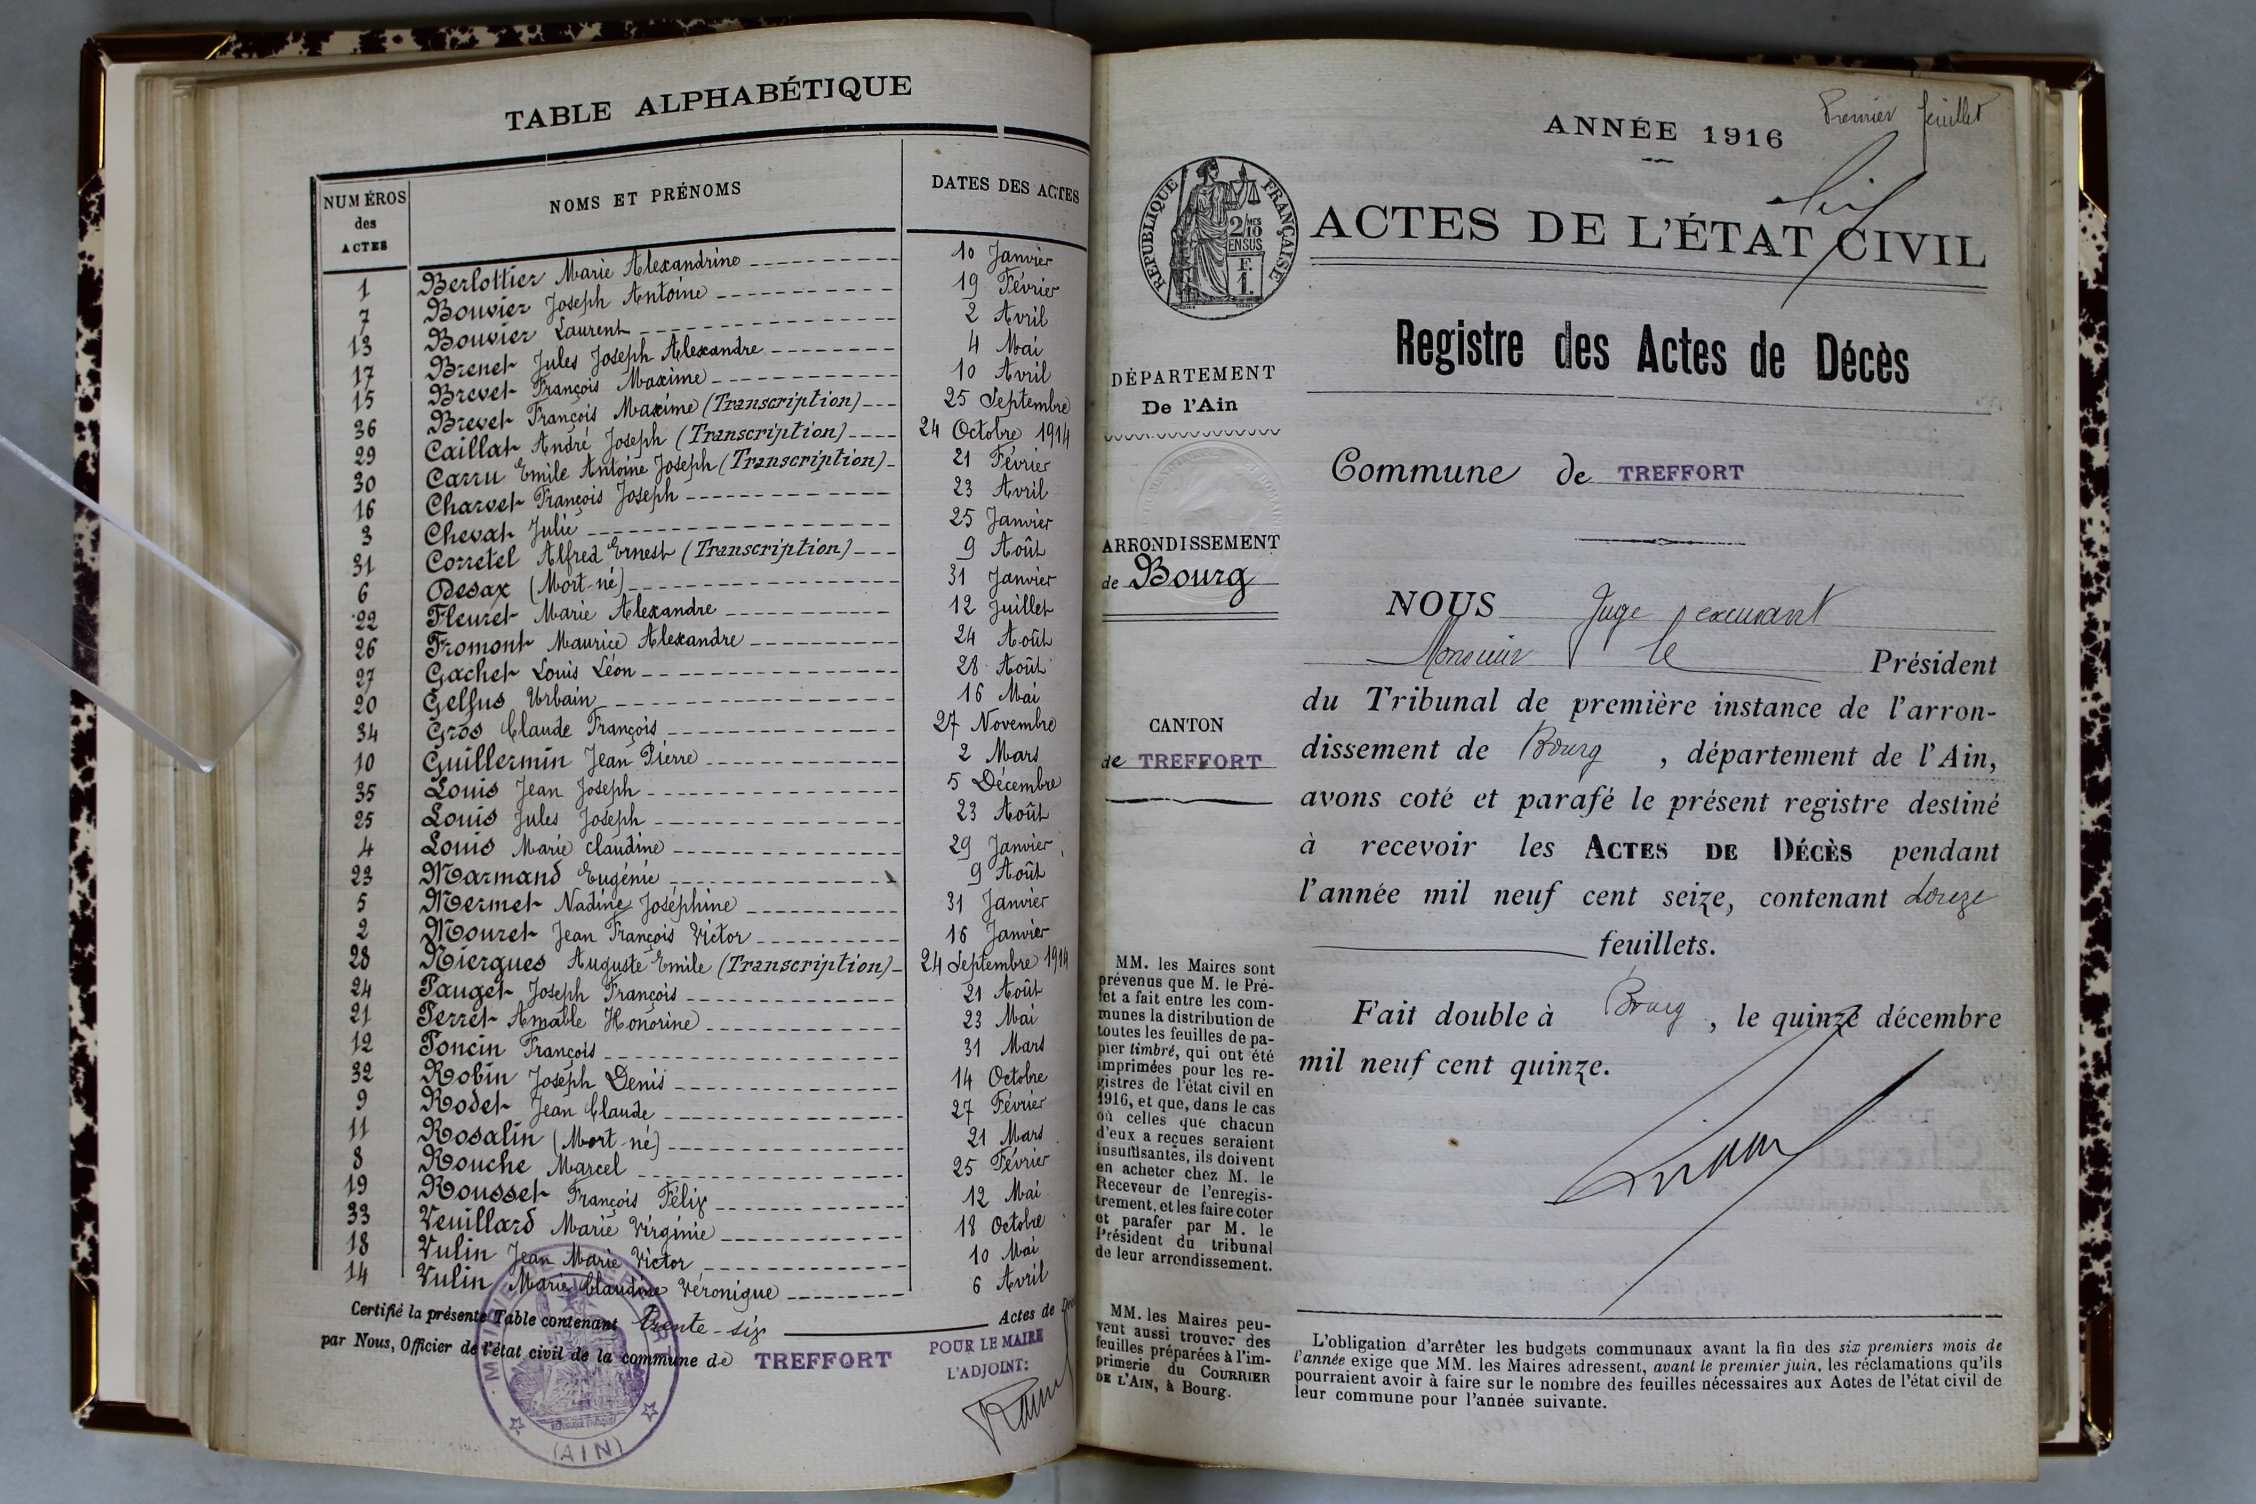 TABLE ALPHABÉTIQUE
NUMÉROS des ACTES NOMS ET PRÉNOMS DATES DES ACTES
1 Berlottier Marie Alexandrine 10 Janvier
7 Bouvier Joseph Antoine 19 Février
13 Bouvier Laurent 2 Avril
17 Brenet Jules Joseph Alexandre 4 Mai
15 Brevet François Maxime 10 Avril
36 Brevet François Maxime (Transcription) 25 Septembre
29 Caillat André Joseph (Transcription) 24 Octobre 1914
30 Carru Emile Antoine Joseph (Transcription) 21 Février
16 Charvet François Joseph 23 Avril
3 Chevat Julie 25 Janvier
31 Corretel Alfred Ernest (Transcription) 9 Août
6 Desax (Mort-né) 31 Janvier
22 Fleuret Marie Alexandre 12 Juillet
26 Fromont Maurice Alexandre 24 Août
27 Gachet Louis Léon 28 Août
20 Gelfus Urbain 16 Mai
34 Gros Claude François 27 Novembre
10 Guillermin Jean Pierre 2 Mars
35 Louis Jean Joseph 5 Décembre
25 Louis Jules Joseph 23 Août
4 Louis Marie Claudine 29 Janvier
23 Marmand Eugénie 9 Août
5 Mermet Nadine Joséphine 31 Janvier
2 Mouret Jean François Victor 16 Janvier
28 Niergues Auguste Emile (Transcription) 24 Septembre 1914
24 Pauget Joseph François 21 Août
21 Perret Amable Honorine 23 Mai
12 Poncin François 31 Mars
32 Robin Joseph Denis 14 Octobre
9 Rodet Jean Claude 27 Février
11 Rosalin (Mort-né) 21 Mars
8 Rouche Marcel 25 Février
19 Rousset François Félix 12 Mai
33 Veuillard Marie Virginie 18 Octobre
18 Vulin Jean Marie Victor 10 Mai
14 Vulin Marie Claudine Véronique 6 Avril
Certifié la présente Table contenant trente-six Actes de
par Nous, Officier de l'état civil de la commune de TREFFORT
POUR LE MAIRE
L'ADJOINT:
(AIN)
Premier feuillet
ANNÉE 1916
RÉPUBLIQUE FRANÇAISE
2/10 MES
EN SUS
F.
1.
ACTES DE L'ÉTAT CIVIL
Registre des Actes de Décès
DÉPARTEMENT
De l'Ain
Commune de TREFFORT
ARRONDISSEMENT
de Bourg
CANTON
de TREFFORT
NOUS Juge excusant
Monsieur le Président
du Tribunal de première instance de l'arron-
dissement de Bourg, département de l'Ain,
avons coté et parafé le présent registre destiné
à recevoir les ACTES DE DÉCÈS pendant
l'année mil neuf cent seize, contenant
feuillets.
Fait double à Bourg, le quinze décembre
mil neuf cent quinze.
MM. les Maires sont
prévenus que M. le Pré-
fet a fait entre les com-
munes la distribution de
toutes les feuilles de pa-
pier timbré, qui ont été
imprimées pour les re-
gistres de l'état civil en
1916, et que, dans le cas
où celles que chacun
d'eux a reçues seraient
insuffisantes, ils doivent
en acheter chez M. le
Receveur de l'enregis-
trement, et les faire coter
et parafer par M. le
Président du tribunal
de leur arrondissement.
MM. les Maires peu-
vent aussi trouver des
feuilles préparées à l'im-
primerie du COURRIER
DE L'AIN, à Bourg.
L'obligation d'arrêter les budgets communaux avant la fin des six premiers mois de
l'année exige que MM. les Maires adressent, avant le premier juin, les réclamations qu'ils
pourraient avoir à faire sur le nombre des feuilles nécessaires aux Actes de l'état civil de
leur commune pour l'année suivante.